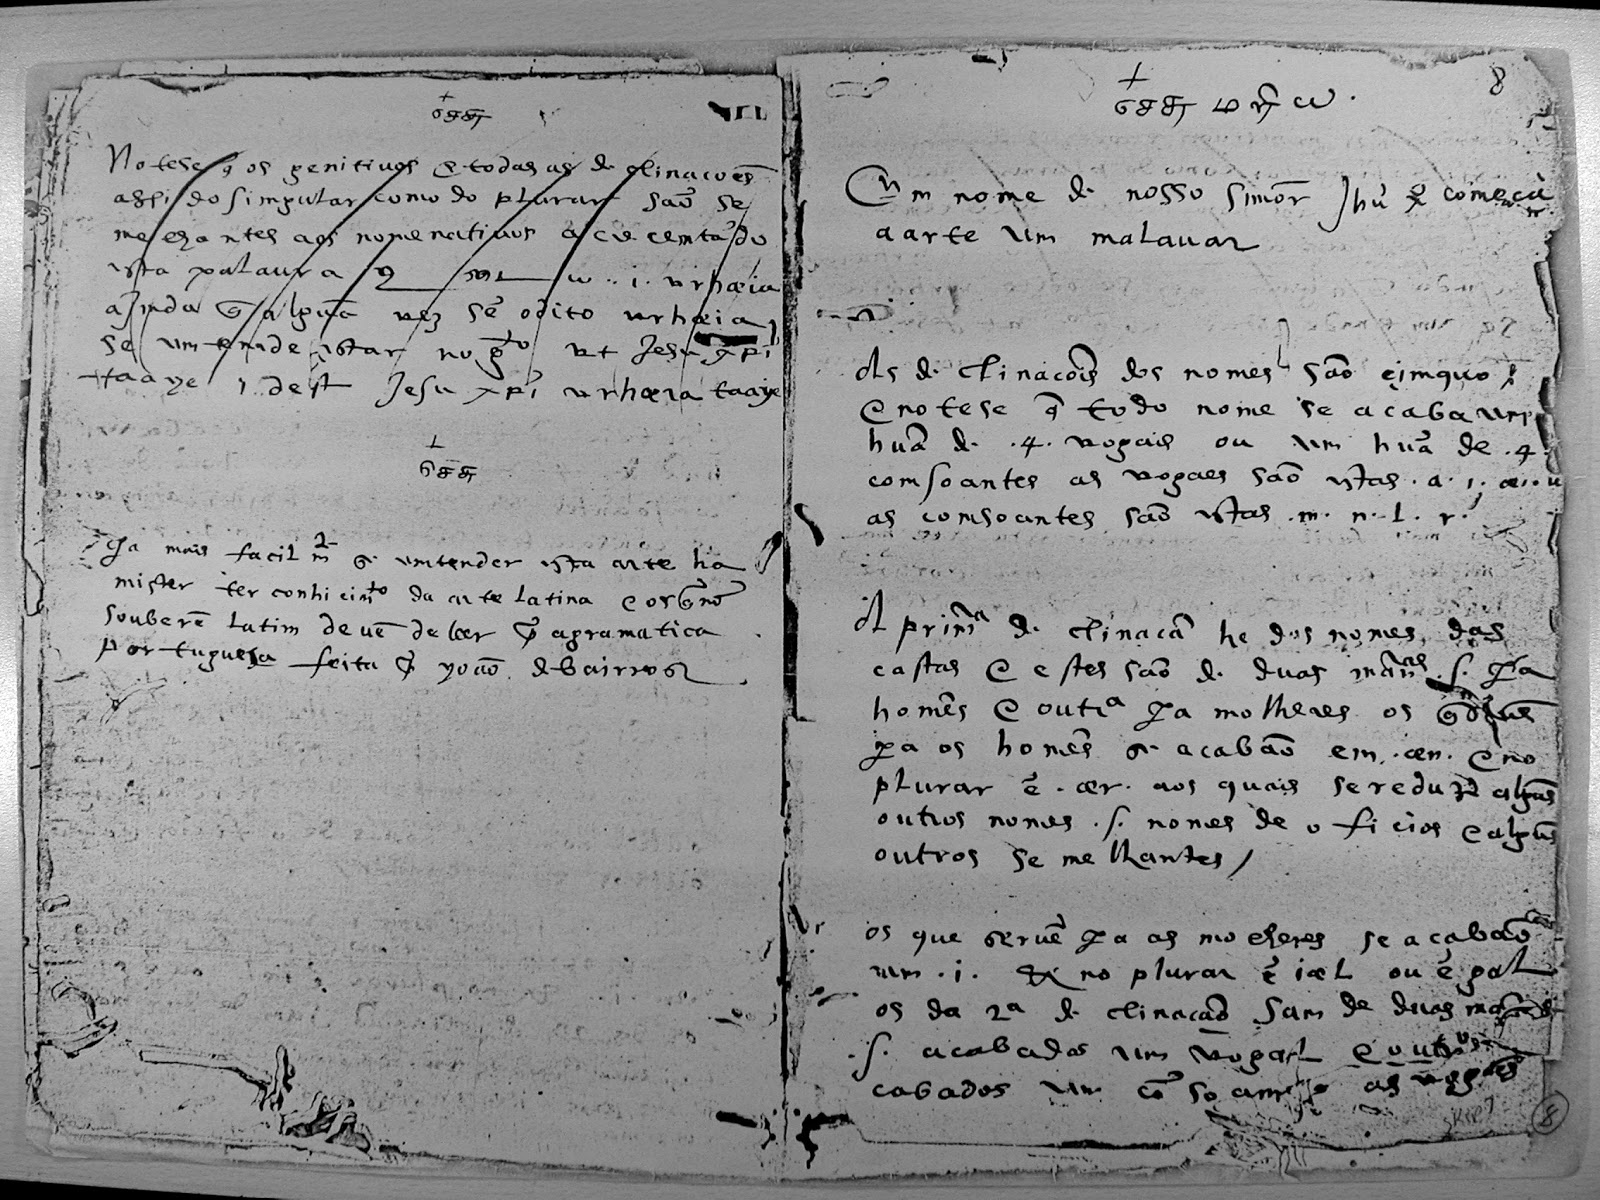 Notese q̃ os genitiuos e todas as declinacoēs
assi do simgular como do plurar saõ se
melhantes aos nomenatiuos acrecemtãdo
esta palaura
ajmda q̃ algũa vez sẽ o dito urhæia
se emtende estar no
taaye i. dest Jesu xpĩ urhæia taaye
Pa mais facilm.te se emtender esta arte ha
mister ter conhicim.to da arte Latina e os q̃ nõ
souberẽ Latim deuẽ de ler por a gramatica
Portuguesa feita por yoaõ de bairros
8
Em nome de nosso simõr Jhũ se comeca
a arte em malauar
As declinacoĩs dos nomes saõ cimquo
e notese q̃ todo nome se acaba em
huã de .4. vogais ou em huã de .4.
comsoantes as vogaes saõ estas .a. i. æ. u
as comsoantes saõ estas .m. n. l. r.
A prim.ra declinacã he dos nomes das
castas e estes saõ de duas man.ras .s. pa
homẽs e outra pa molheres os que seruẽ
pa os homẽs se acabaõ em .æn. e no
plurar ẽ .ær. aos quais se reduzẽ algũs
outros nomes .s. nomes de oficios e algũs
outros semelhantes /
os que seruẽ pa as molheres se acabaõ
em .i. & no plurar ẽ iæl ou ẽ gal
os da 2.a declinacaõ sam de duas man.ras
.s. acabados em vogal e outros
cabados em cõsoamte as vogaes
8